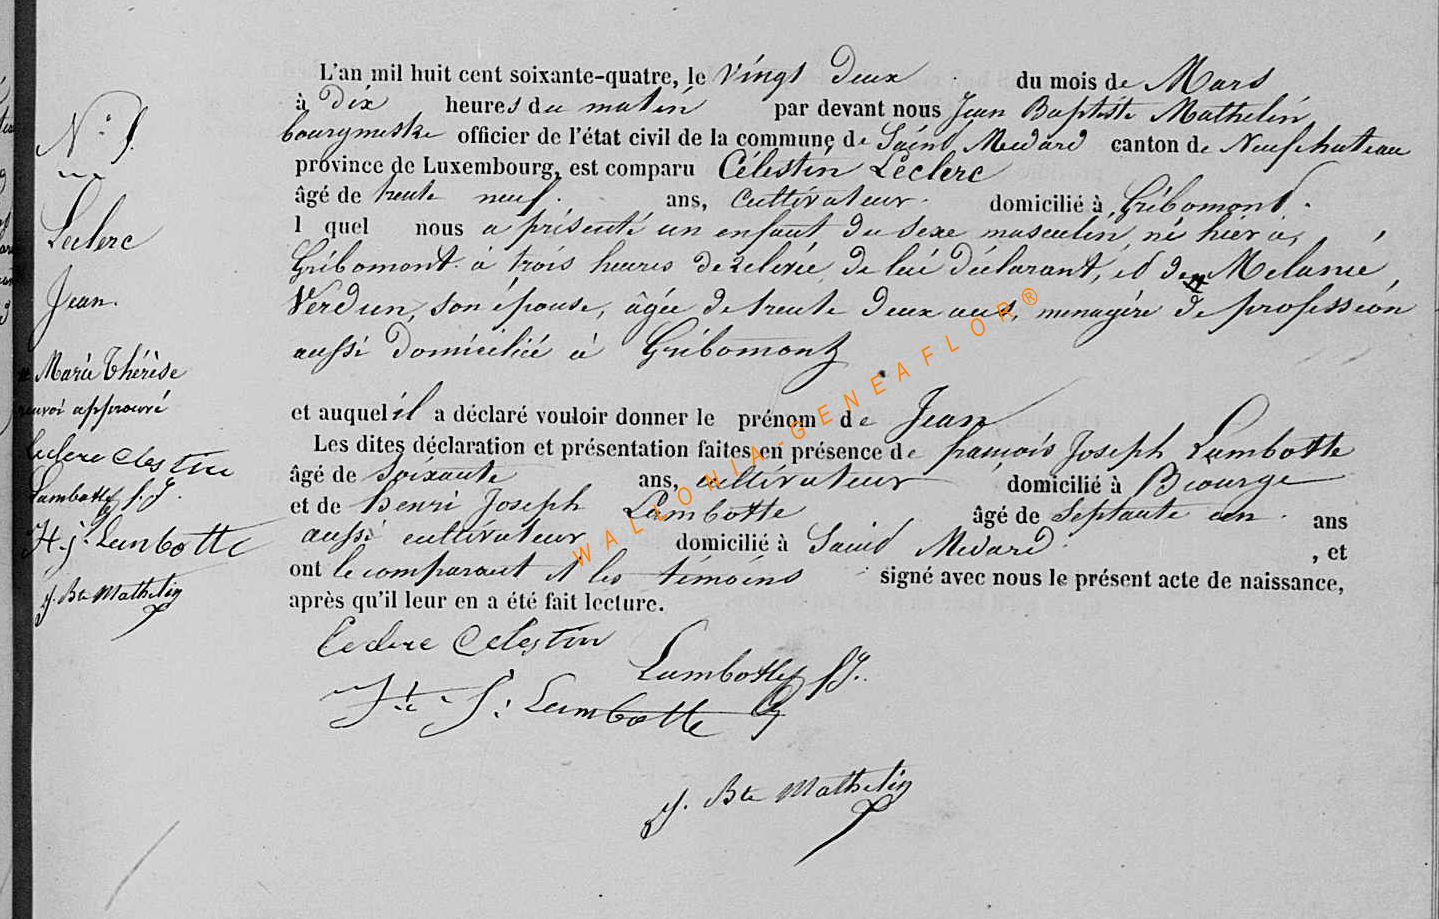 N° 9.
Leclerc
Jean.
# Marie Thérèse
renvoi approuvé
Leclerc Celestin
Lambotte f. J.
H. j. Lambotte
j. Bte Mathelin
L'an mil huit cent soixante-quatre, le vingt deux du mois de Mars
à dix heures du matin par devant nous Jean Baptiste Mathelin,
bourgmestre officier de l'état civil de la commune de Saint Medard canton de Neufchateau
province de Luxembourg, est comparu Célestin Leclerc
âgé de trente neuf ans, cultivateur domicilié à Gribomont
l quel nous a présenté un enfant du sexe masculin, né hier à,
Gribomont à trois heures de relevée de lui déclarant, et de # Melanie
Verdun, son épouse, âgée de trente deux ans, menagère de profession
aussi domiciliée à Gribomont
et auquel il a déclaré vouloir donner le prénom de Jean
Les dites déclaration et présentation faites en présence de françois Joseph Lambotte
âgé de soixante ans, cultivateur domicilié à Biourge
et de Henri Joseph Lambotte âgé de septante un ans
aussi cultivateur domicilié à Saint Medard , et
ont le comparant et les témoins signé avec nous le présent acte de naissance,
après qu'il leur en a été fait lecture.
Leclerc Celestin
Lambotte f J.
H. J. Lambotte
j. Bte Mathelin
WALLONIA-GENEAFLOR®